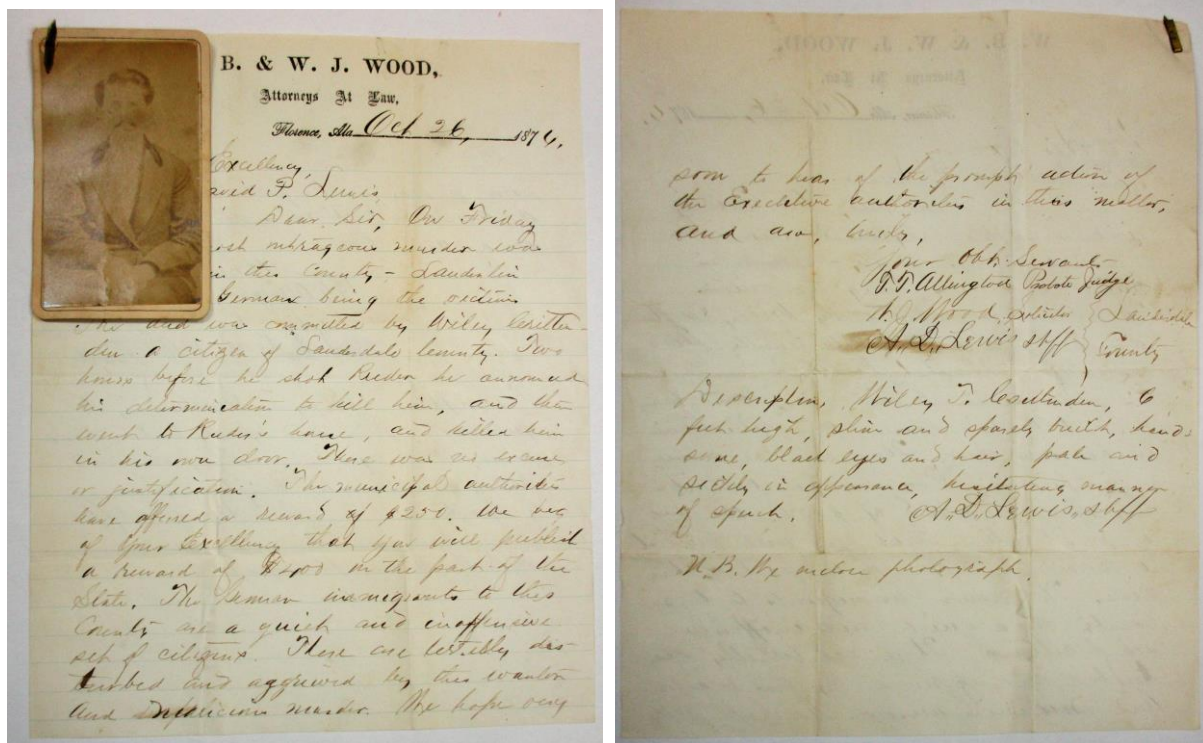 B. & W. J. WOOD,
Attorneys At Law,
Florence, Ala Oct 26, 1874.
Excellency,
David P. Lewis
Dear Sir, On Friday
most outrageous murder was
in this County - Lauderdale
German being the victim
The deed was committed by Wiley Critten-
den a citizen of Lauderdale County. Two
hours before he shot Rieder he announced
his determination to kill him, and then
went to Rieder's house, and killed him
in his own door. There was no excuse
or justification. The municipal authorities
have offered a reward of $250. We beg
of your Excellency that you will publish
a reward of $400 on the part of the
State. The German immigrants to this
County are a quiet and inoffensive
set of citizens. These are terribly dis-
turbed and aggrieved by this wanton
and malicious murder. We hope very
soon to hear of the prompt action of
the Executive authorities in this matter,
and are, truly,
Your Obt. Servants
T. T. Allington Probate Judge
W. J. Wood, solicitor Lauderdale
A. D. Lewis Shff County
Description, Wiley T. Crittenden, 6
feet high, slim and sparely built, hand-
some, black eyes and hair, pale and
sickly in appearance, hesitating manner
of speech. A. D. Lewis Shff
N. B. We inclose photograph.